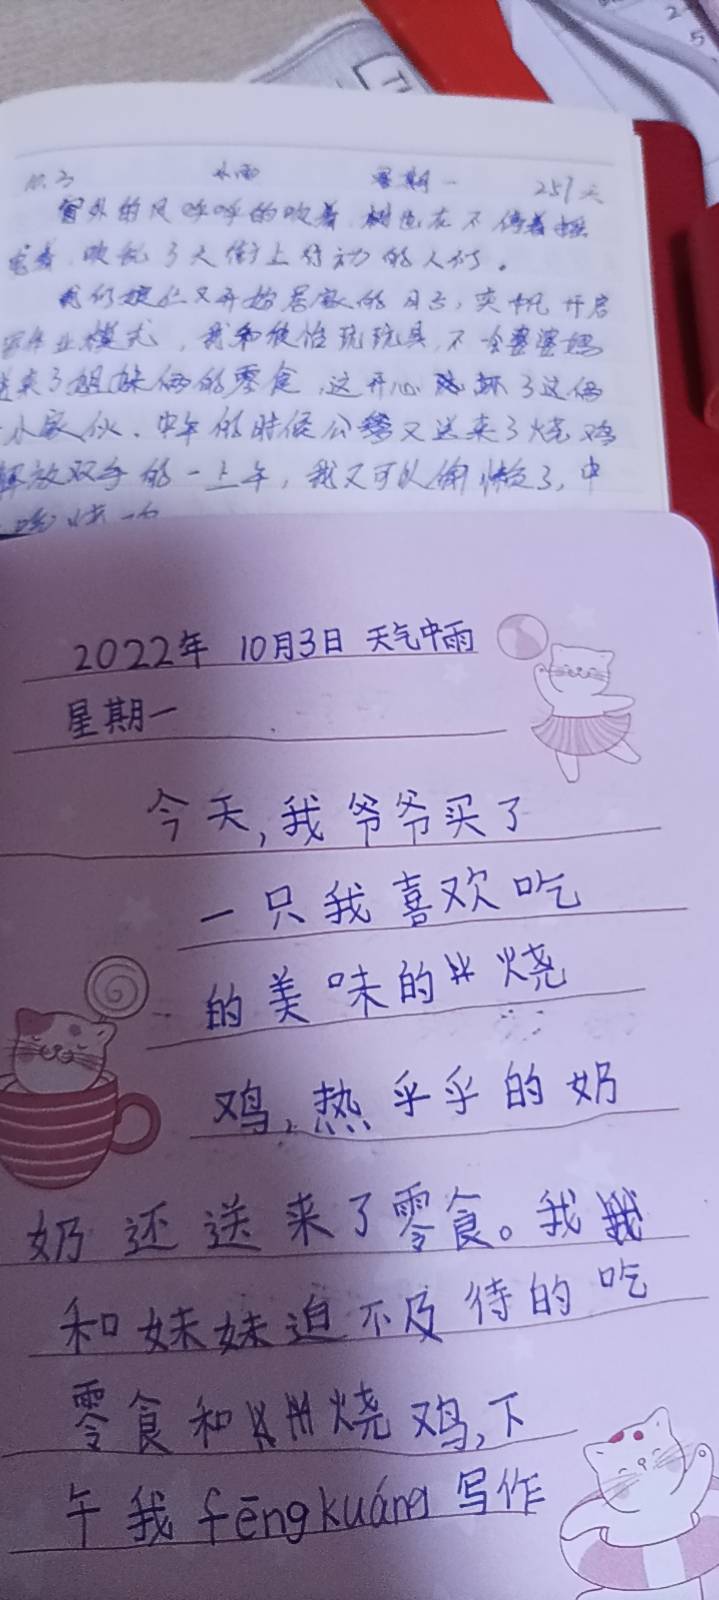 10.3 小雨 星期一 257天
窗外的风呼呼的吹着,树也在不停着摇
着,吹乱了大街上行动的人们。
我们娘仨又开始居家的日子,奕帆开启
作业模式,我和彼怡玩玩具,不会婆婆妈
送来了姐妹俩的零食,这开心坏了这俩
小家伙.中午的时候公公又送来了烧鸡
解放双手的一上午,我又可以偷懒了,中
2022年 10月3日 天气中雨
星期一
今天,我爷爷买了
一只我喜欢吃
的美味的烧
鸡,热乎乎的奶
奶还送来了零食。我
和妹妹迫不及待的吃
零食和烧鸡,下
午我fēngkuáng写作